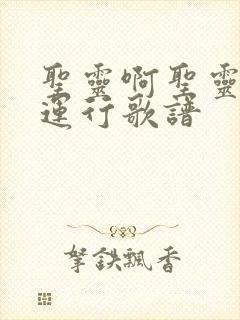 聖靈啊聖靈
運行歌譜
拏鉄飄香